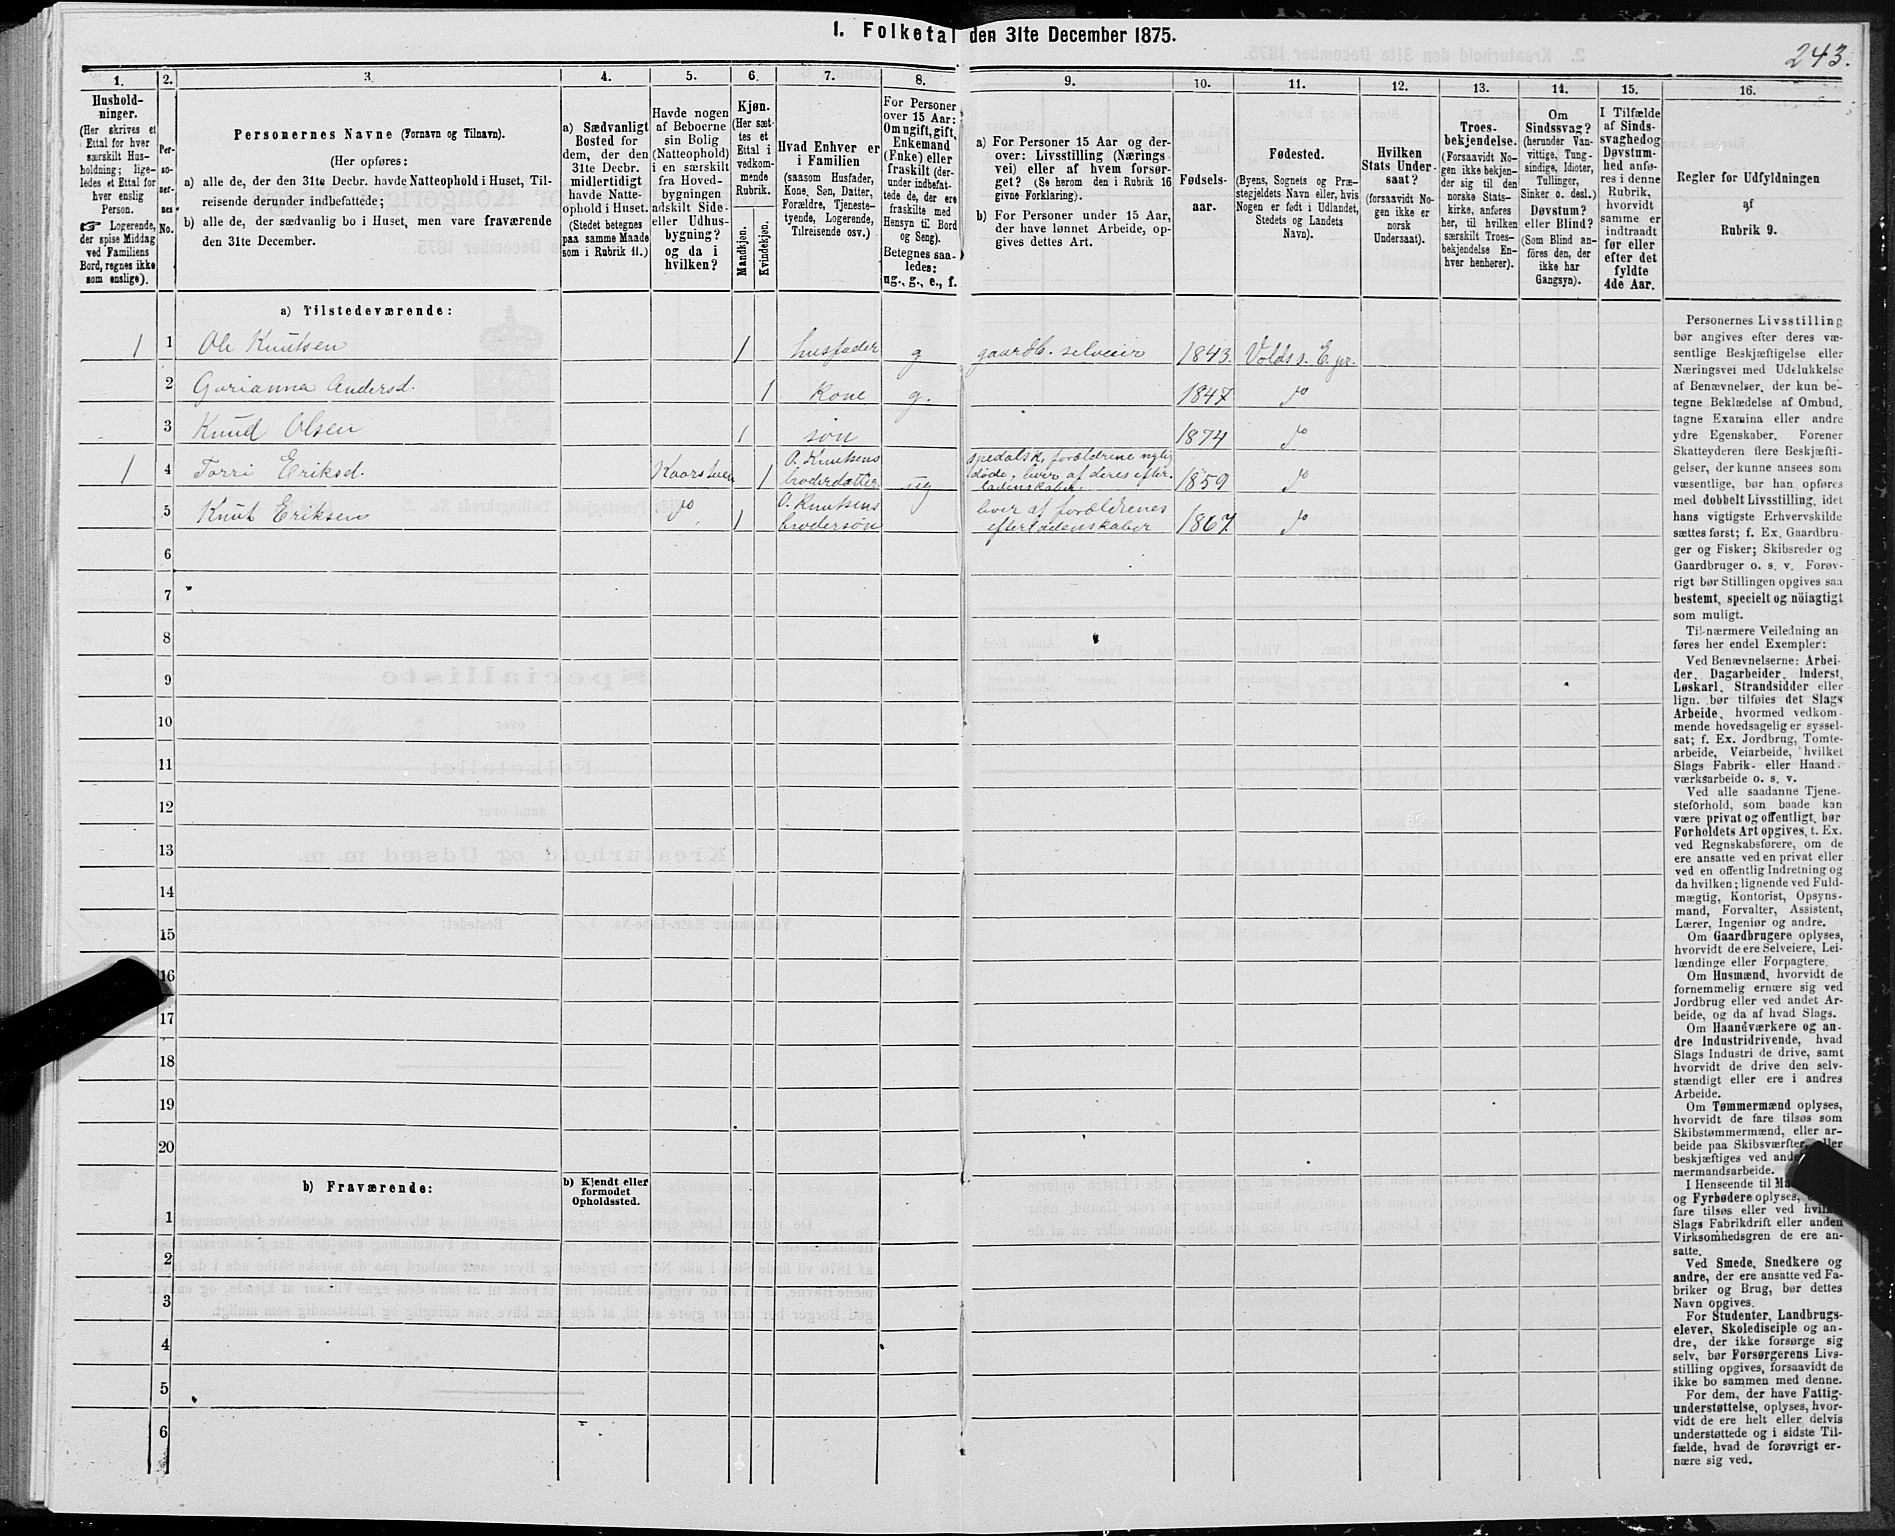 1. Folketal den 31te December 1875.
243.
1. 2. 3. 4. 5. 6. 7. 8. 9. 10. 11. 12. 13. 14. 15. 16.
Hushold-
ninger.
(Her skrives et
Ettal for hver
særskilt Hus-
holdning; lige-
ledes et Ettal for
hver enslig
Person.
☞ Logerende,
der spise Middag
ved Familiens
Bord, regnes ikke
som enslige).
Per-
so-
ner-
nes
No.
Personernes Navne (Fornavn og Tilnavn).
(Her opføres:
a) alle de, der den 31te Decbr. havde Natteophold i Huset, Til-
reisende derunder indbefattede;
b) alle de, der sædvanlig bo i Huset, men vare fraværende
den 31te December.
a) Sædvanligt
Bosted for
dem, der den
31te Decbr.
midlertidigt
havde Natte-
ophold i Huset.
(Stedet betegnes
paa samme Maade
som i Rubrik 11.)
Havde nogen
af Beboerne
sin Bolig
(Natteophold)
i en særskilt
fra Hoved-
bygningen
adskilt Side-
eller Udhus-
bygning?
og da i
hvilken?
Kjøn.
(Her sæt-
tes et
Ettal i
vedkom-
mende
Rubrik.
Mandkjøn.
Kvindekjøn.
Hvad Enhver er
i Familien
(saasom Husfader,
Kone, Søn, Datter,
Forældre, Tjeneste-
tyende, Logerende,
Tilreisende osv.)
For Personer
over 15 Aar:
Om ugift, gift,
Enkemand
(Enke) eller
fraskilt (der-
under indbefat-
tede de, der ere
fraskilte med
Hensyn til Bord
og Seng).
Betegnes saa-
ledes:
ug., g., e., f.
a) For Personer 15 Aar og der-
over: Livsstilling (Nærings
vei) eller af hvem forsør-
get? (Se herom den i Rubrik 16
givne Forklaring).
b) For Personer under 15 Aar,
der have lønnet Arbeide, op-
gives dettes Art.
Fødsels-
aar.
Fødested.
(Byens, Sognets og Præ-
stegjeldets Navn eller, hvis
Nogen er født i Udlandet,
Stedets og Landets
Navn).
Hvilken
Stats Under-
saat?
(forsaavidt No-
gen ikke er
norsk
Undersaat).
Troes-
bekjendelse.
(Forsaavidt No-
gen ikke bekjen-
der sig til den
norske Stats-
kirke, anføres
her, til hvilken
særskilt Troes-
bekjendelse En-
hver henhører).
Om
Sindssvag?
(herunder Van-
vittige, Tung-
sindige, Idioter,
Tullinger,
Sinker o. desl.)
Døvstum?
eller Blind?
(Som Blind an-
føres den, der
ikke har
Gangsyn).
I Tilfælde
af Sinds-
svaghed og
Døvstum-
hed anfø-
res i denne
Rubrik,
hvorvidt
samme er
indtraadt
før eller
efter det
fyldte
4de Aar.
Regler for Udfyldningen
af
Rubrik 9.
a) Tilstedeværende:
1 1 Ole Knutsen 1 husfader g gaardb. selveier 1843. Volds s. E. gr.
2 Gurianna Andersd. 1 Kone g. 1847 do
3 Knud Olsen 1 søn 1874 do
1 4 Torri Eriksd. Kaarstuen 1 O. Knutsens broderdatter ug spedalsk, forældrene nylig døde, lever af deres efterladenskaber. 1859 do
5 Knut Eriksen do 1 O. Knutsens brodersøn lever af forældrenes efterladenskaber 1867 do
6
7
8
9
10
11
12
13
14
15
16
17
18
19
20
b) Fraværende:
b) Kjendt eller
formodet
Opholdssted.
1
2
3
4
5
6
Personernes Livsstilling
bør angives efter deres væ-
sentlige Beskjæftigelse eller
Næringsvei med Udelukkelse
af Benævnelser, der kun be-
tegne Beklædelse af Ombud,
tagne Examina eller andre
ydre Egenskaber. Forener
Skatteyderen flere Beskjæfti-
gelser, der kunne ansees som
væsentlige, bør han opføres
med dobbelt Livsstilling, idet
hans vigtigste Erhvervskilde
sættes først; f. Ex. Gaardbru-
ger og Fisker; Skibsreder og
Gaardbruger o. s. v. Forøv-
rigt bør Stillingen opgives saa
bestemt, specielt og nöiagtigt
som muligt.
Til nærmere Veiledning an-
føres her endel Exempler:
Ved Benævnelserne: Arbei-
der, Dagarbeider, Inderst,
Løskarl, Strandsidder eller
lign. bør tilføies det Slags
Arbeide, hvormed vedkom-
mende hovedsagelig er syssel-
sat; f. Ex. Jordbrug, Tomte-
arbeide, Veiarbeide, hvilket
Slags Fabrik- eller Haand-
værksarbeide o. s. v.
Ved alle saadanne Tjene-
steforhold, som baade kan
være privat og offentligt, bør
Forholdets Art opgives, t. Ex.
ved Regnskabsførere, om de
ere ansatte ved en privat eller
ved en offentlig Indretning og
da hvilken; lignende ved Fuld-
mægtig, Kontorist, Opsyns-
mand, Forvalter, Assistent,
Lærer, Ingeniør og andre.
Om Gaardbrugere oplyses,
hvorvidt de ere Selveiere, Lei-
lændinge eller Forpagtere.
Om Husmænd, hvorvidt de
fornemmelig ernære sig ved
Jordbrug eller ved andet Ar-
beide, og da af hvad Slags.
Om Haandværkere og an-
dre Industridrivende, hvad
Slags Industri de drive, samt
hvorvidt de drive den selv-
stændigt eller ere i andres
Arbeide.
Om Tømmermænd oplyses,
hvorvidt de fare tilsøs som
Skibstømmermænd, eller ar-
beide paa Skibsværfter, eller
beskjæftiges ved
mermandsarbeide.
I Henseende til
og Fyrbødere oplyses,
fare tilsøs eller ved
Slags Fabrikdrift eller anden
Virksomhedsgren de ere an-
satte.
Ved Smede, Snedkere og
andre, der ere ansatte ved Fa-
briker og Brug, bør dettes
Navn opgives.
For Studenter, Landbrugs-
elever, Skoledisciple og an-
dre, der ikke forsørge sig
selv, bør Forsørgerens Livs-
stilling opgives, forsaavidt de
ikke bo sammen med denne.
For dem, der have Fattig-
understøttelse, oplyses, hvor-
vidt de ere helt eller delvis
understøttede og i sidste Til-
fælde, hvad de forøvrigt er-
nære sig ved.